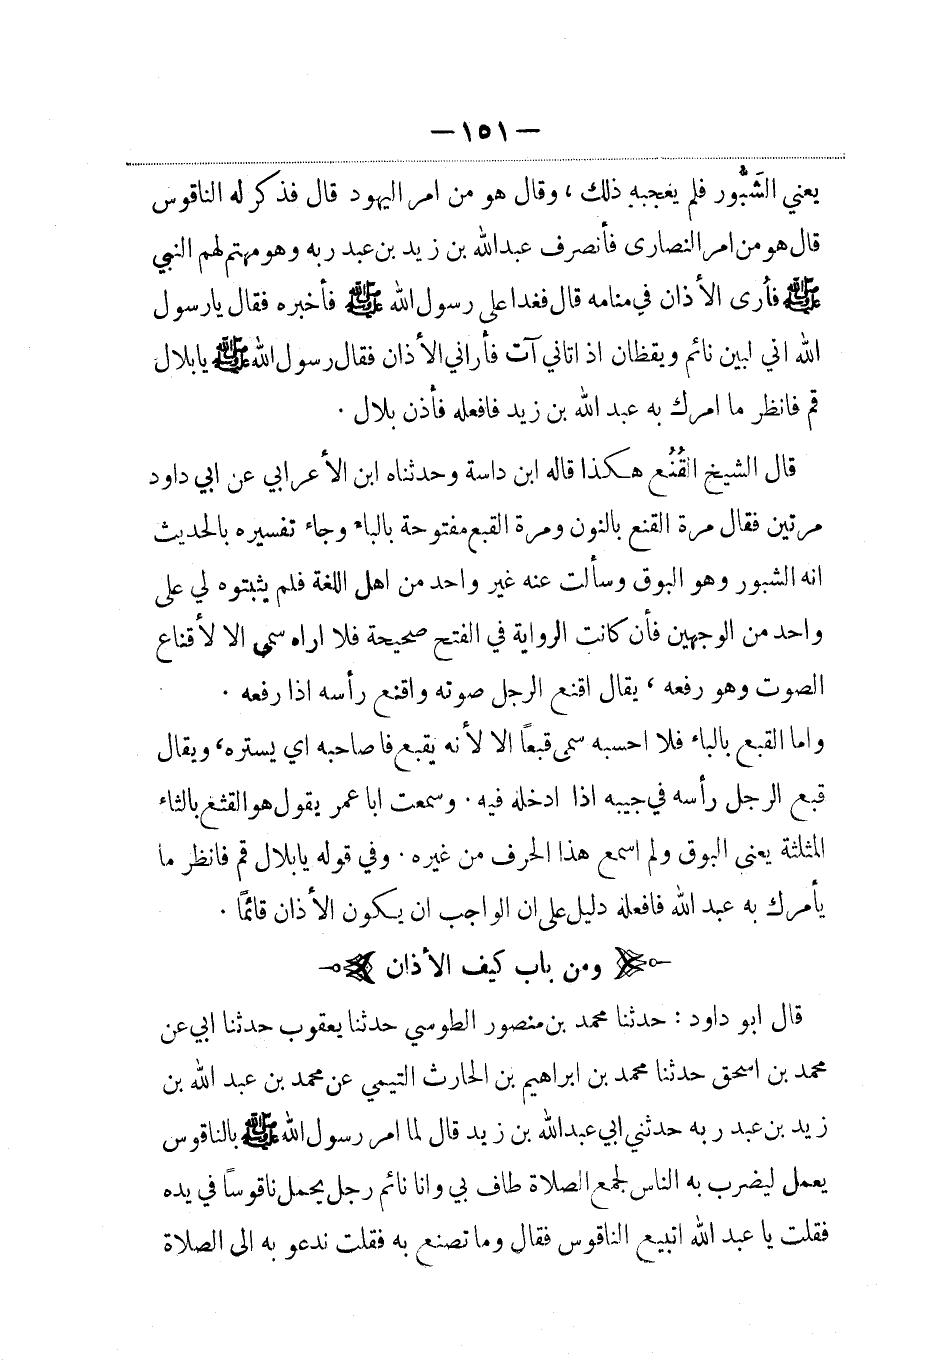 — ١٥١ —
يعني الشَّبُّور فلم يعجبه ذلك ، وقال هو من امر اليهود قال فذكر له الناقوس
قال هو من امر النصارى فأنصرف عبدالله بن زيد بن عبد ربه وهو مهتم لهم النبي
ﷺ فأرى الأذان في منامه قال فغدا على رسول الله ﷺ فأخبره فقال يارسول
الله اني لبين نائم ويقظان اذ اتاني آت فأراني الأذان فقال رسول الله ﷺ يابلال
قم فانظر ما امرك به عبد الله بن زيد فافعله فأذن بلال ٠
قال الشيخ القُنُع هكذا قاله ابن داسة وحدثناه ابن الأعرابي عن ابي داود
مرتين فقال مرة القنع بالنون ومرة القبع مفتوحة بالباء وجاء تفسيره بالحديث
انه الشبور وهو البوق وسألت عنه غير واحد من اهل اللغة فلم يثبتوه لي على
واحد من الوجهين فأن كانت الرواية في الفتح صحيحة فلا اراه سمي الا لأقناع
الصوت وهو رفعه ، يقال اقنع الرجل صوته واقنع رأسه اذا رفعه ٠
واما القبع بالباء فلا احسبه سمى قبعاً الا لأنه يقبع فا صاحبه اي يستره ، ويقال
قبع الرجل رأسه في جيبه اذا ادخله فيه ٠ وسمعت ابا عمر يقول هو القثغ بالثاء
المثلثة يعنى البوق ولم اسمع هذا الحرف من غيره ٠ وفي قوله يابلال قم فانظر ما
يأمرك به عبد الله فافعله دليل على ان الواجب ان يكون الأذان قائمًا ٠
ومن باب كيف الأذان
قال ابو داود : حدثنا محمد بن منصور الطوسي حدثنا يعقوب حدثنا ابي عن
محمد بن اسحق حدثنا محمد بن ابراهيم بن الحارث التيمي عن محمد بن عبد الله بن
زيد بن عبد ربه حدثني ابي عبدالله بن زيد قال لما امر رسول الله ﷺ بالناقوس
يعمل ليضرب به الناس لجمع الصلاة طاف بي وانا نائم رجل يحمل ناقوساً في يده
فقلت يا عبد الله اتبيع الناقوس فقال وما تصنع به فقلت ندعو به الى الصلاة